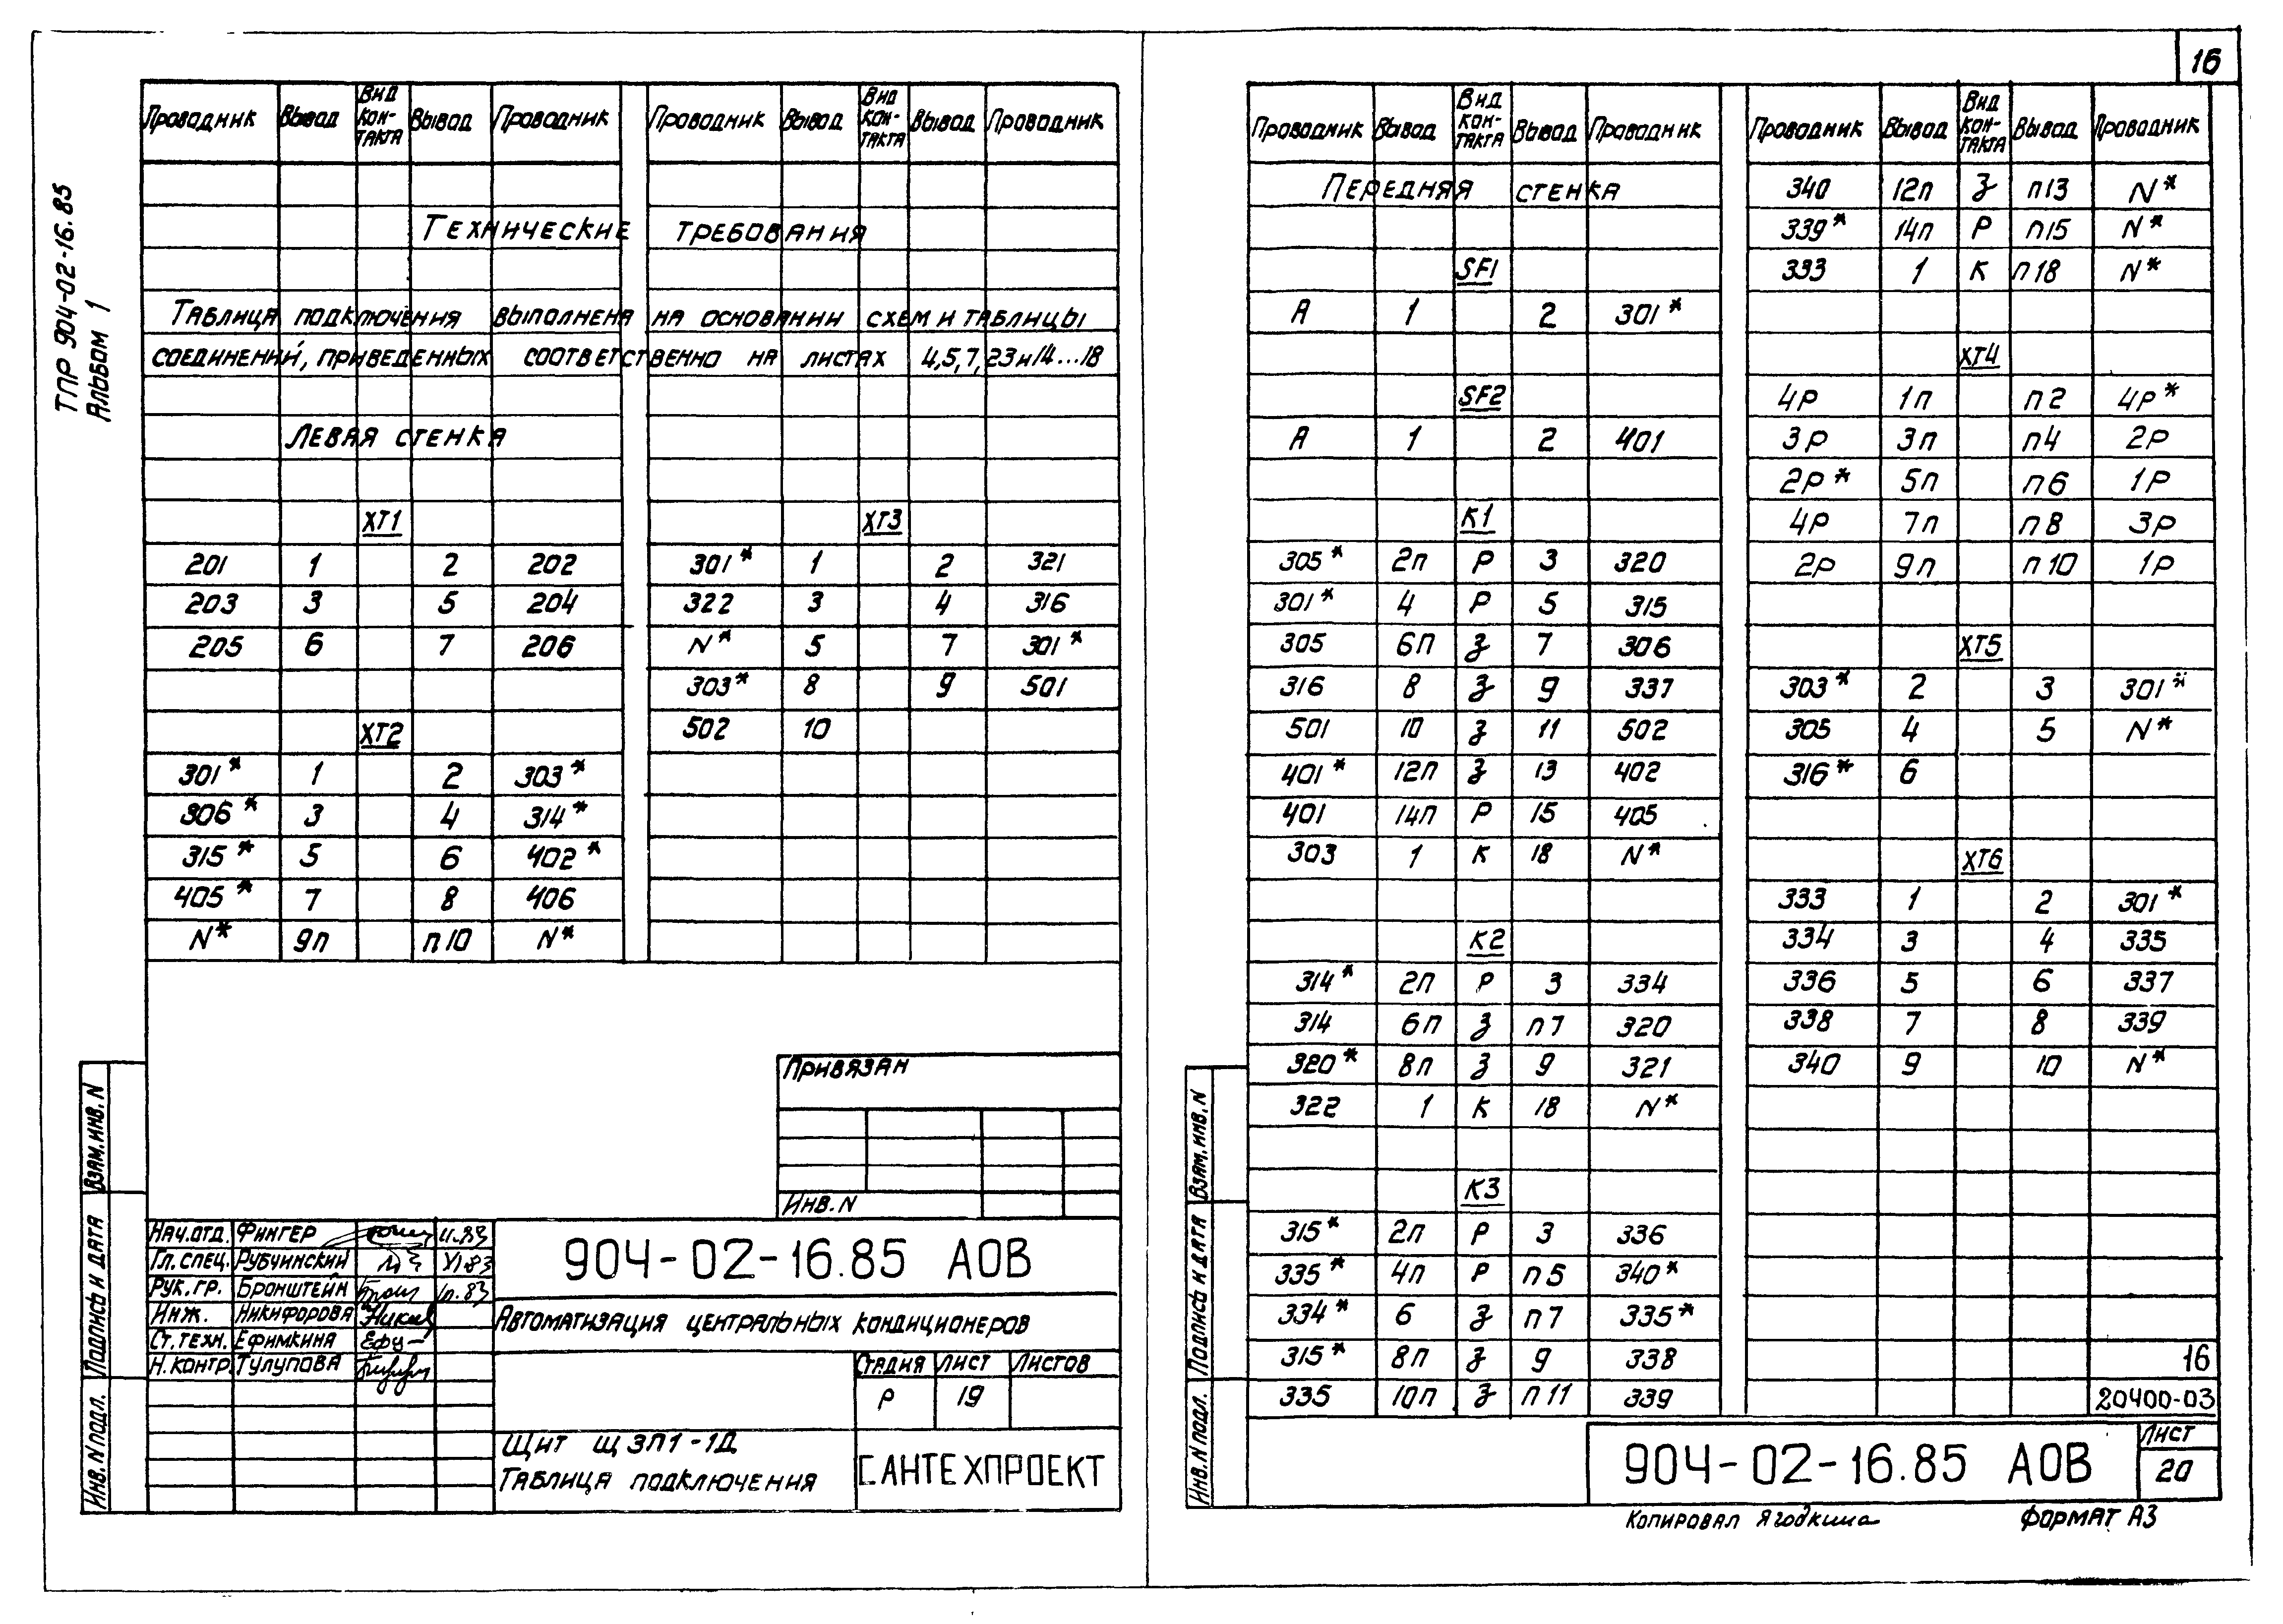 16
ТПР 904-02-16.85
Альбом 1
Проводник Вывод Вид контакта Вывод Проводник Проводник Вывод Вид контакта Вывод Проводник
Технические требования
Таблица подключения выполнена на основании схем и таблицы
соединений, приведенных соответственно на листах 4,5,7,23 и 14...18
Левая стенка
XT1 XT3
201 1 2 202 301* 1 2 321
203 3 5 204 322 3 4 316
205 6 7 206 N* 5 7 301*
303* 8 9 501
XT2 502 10
301* 1 2 303*
306* 3 4 314*
315* 5 6 402*
405* 7 8 406
N* 9п п10 N*
Привязан
Инв. N
Взам. инв. N
Подпись и дата
Инв. N подл.
Нач. отд. Фингер 11.83
Гл. спец. Рубчинский VI.83
Рук. гр. Бронштейн
Инж. Никифорова
Ст. техн. Ефимкина
Н. контр. Тулупова
904-02-16.85 АОВ
Автоматизация центральных кондиционеров
Стадия Лист Листов
Р 19
Щит ЩЗП1-1Д
Таблица подключения
САНТЕХПРОЕКТ
Проводник Вывод Вид контакта Вывод Проводник Проводник Вывод Вид контакта Вывод Проводник
Передняя стенка 340 12п З п13 N*
339* 14п Р п15 N*
SF1 333 1 К п18 N*
А 1 2 301*
XT4
SF2 4Р 1п п2 4Р*
А 1 2 401 3Р 3п п4 2Р
2Р* 5п п6 1Р
К1 4Р 7п п8 3Р
305* 2п Р 3 320 2Р 9п п10 1Р
301* 4 Р 5 315
305 6п З 7 306 XT5
316 8 З 9 337 303* 2 3 301*
501 10 З 11 502 305 4 5 N*
401* 12п З 13 402 316* 6
401 14п Р 15 405
303 1 К 18 N* XT6
333 1 2 301*
К2 334 3 4 335
314* 2п Р 3 334 336 5 6 337
314 6п З п7 320 338 7 8 339
320* 8п З 9 321 340 9 10 N*
322 1 К 18 N*
К3
315* 2п Р 3 336
335* 4п Р п5 340*
334* 6 З п7 335*
315* 8п З 9 338 16
335 10п З п11 339 20400-03
Взам. инв. N
Подпись и дата
Инв. N подл.
904-02-16.85 АОВ
Лист
20
Копировал Ягодкина Формат А3